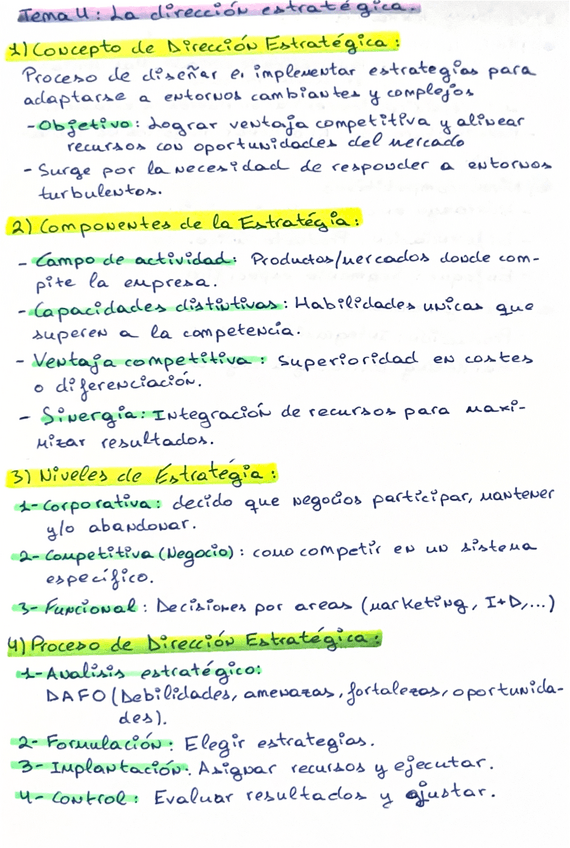 Tema 4: La dirección estratégica.
1) Concepto de Dirección Estratégica:
Proceso de diseñar e implementar estrategias para
adaptarse a entornos cambiantes y complejos
- Objetivo: Lograr ventaja competitiva y alinear
recursos con oportunidades del mercado
- Surge por la necesidad de responder a entornos
turbulentos.
2) Componentes de la Estratégia:
- Campo de actividad: Productos/mercados donde com-
pite la empresa.
- Capacidades distintivas: Habilidades unicas que
superen a la competencia.
- Ventaja competitiva: superioridad en costes
o diferenciación.
- Sinergia: Integración de recursos para maxi-
mizar resultados.
3) Niveles de Estrategia:
1- Corporativa: decido que negocios participar, mantener
y/o abandonar.
2- Competitiva (Negocio): como competir en un sistema
específico.
3- Funcional: Decisiones por areas (marketing, I+D,...)
4) Proceso de Dirección Estratégica:
1- Analisis estratégico:
DAFO (Debilidades, amenazas, fortalezas, oportunida-
des).
2- Formulación: Elegir estrategias.
3- Implantación: Asignar recursos y ejecutar.
4- Control: Evaluar resultados y ajustar.